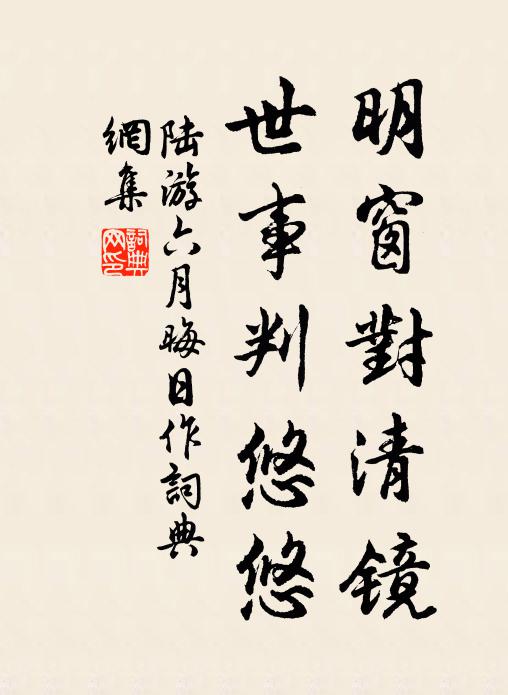 明窗對清镜
世事判悠悠
陆游六月晦日作詞典
網集
詞典網印